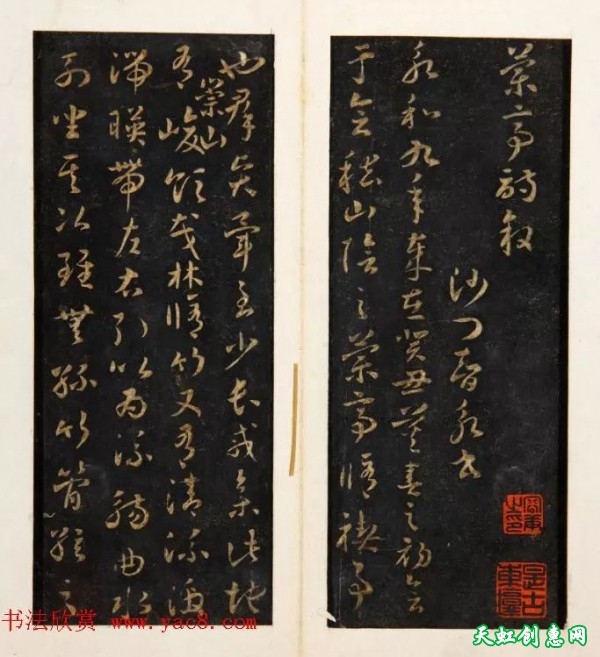 蘭亭詩叙
沙門智永書
永和九年歲在癸丑暮春之初會
于會稽山陰之蘭亭脩禊事
也群賢畢至少長咸集此地
有崇山峻領茂林脩竹又有清流激
湍暎帶左右引以為流觴曲水
列坐其次雖無絲竹管弦之
书法欣赏 www.yac8.com
天虹创惠网